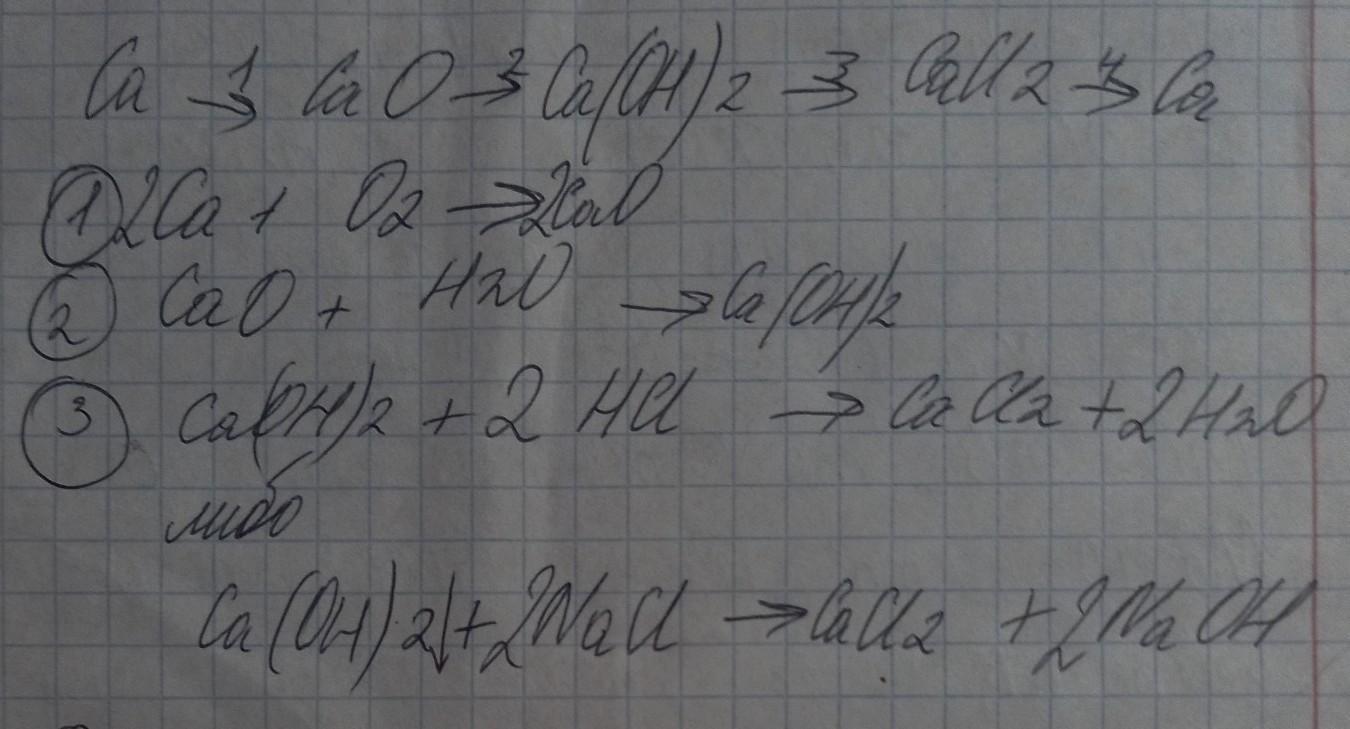 Ca →1 CaO →2 Ca(OH)2 →3 CaCl2 →4 Ca
1 2Ca + O2 → 2CaO
2 CaO + H2O → Ca(OH)2
3 Ca(OH)2 + 2HCl → CaCl2 + 2H2O
либо
Ca(OH)2↓ + 2NaCl → CaCl2 + 2NaOH